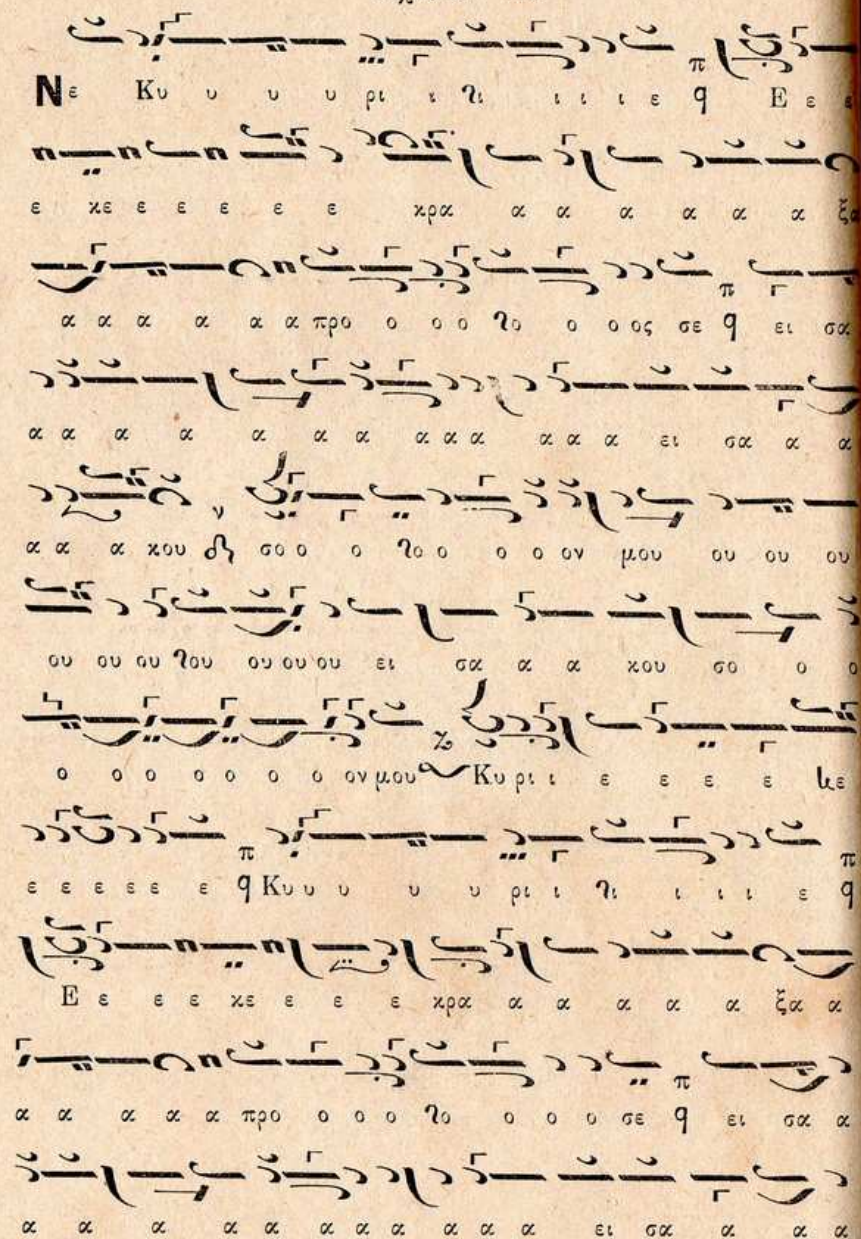 Νε Κυ υ υ υ ρι ι τι ι ι ι ε q Ε ε ε
ε κε ε ε ε ε ε κρα α α α α α α ξα
α α α α α α προ ο ο ο το ο ο ος σε q ει σα
α α α α α α α α α α α α α ει σα α α
α α α κου σο ο ο το ο ο ο ον μου ου ου ου
ου ου ου του ου ου ου ει σα α α κου σο ο ο
ο ο ο ο ο ο ο ον μου Κυ ρι ι ε ε ε ε κε
ε ε ε ε ε ε q Κυ υ υ υ υ ρι ι τι ι ι ε q
Ε ε ε ε κε ε ε ε κρα α α α α α ξα α
α α α α α προ ο ο ο το ο ο ο σε q ει σα α
α α α α α α α α α α α ει σα α α α